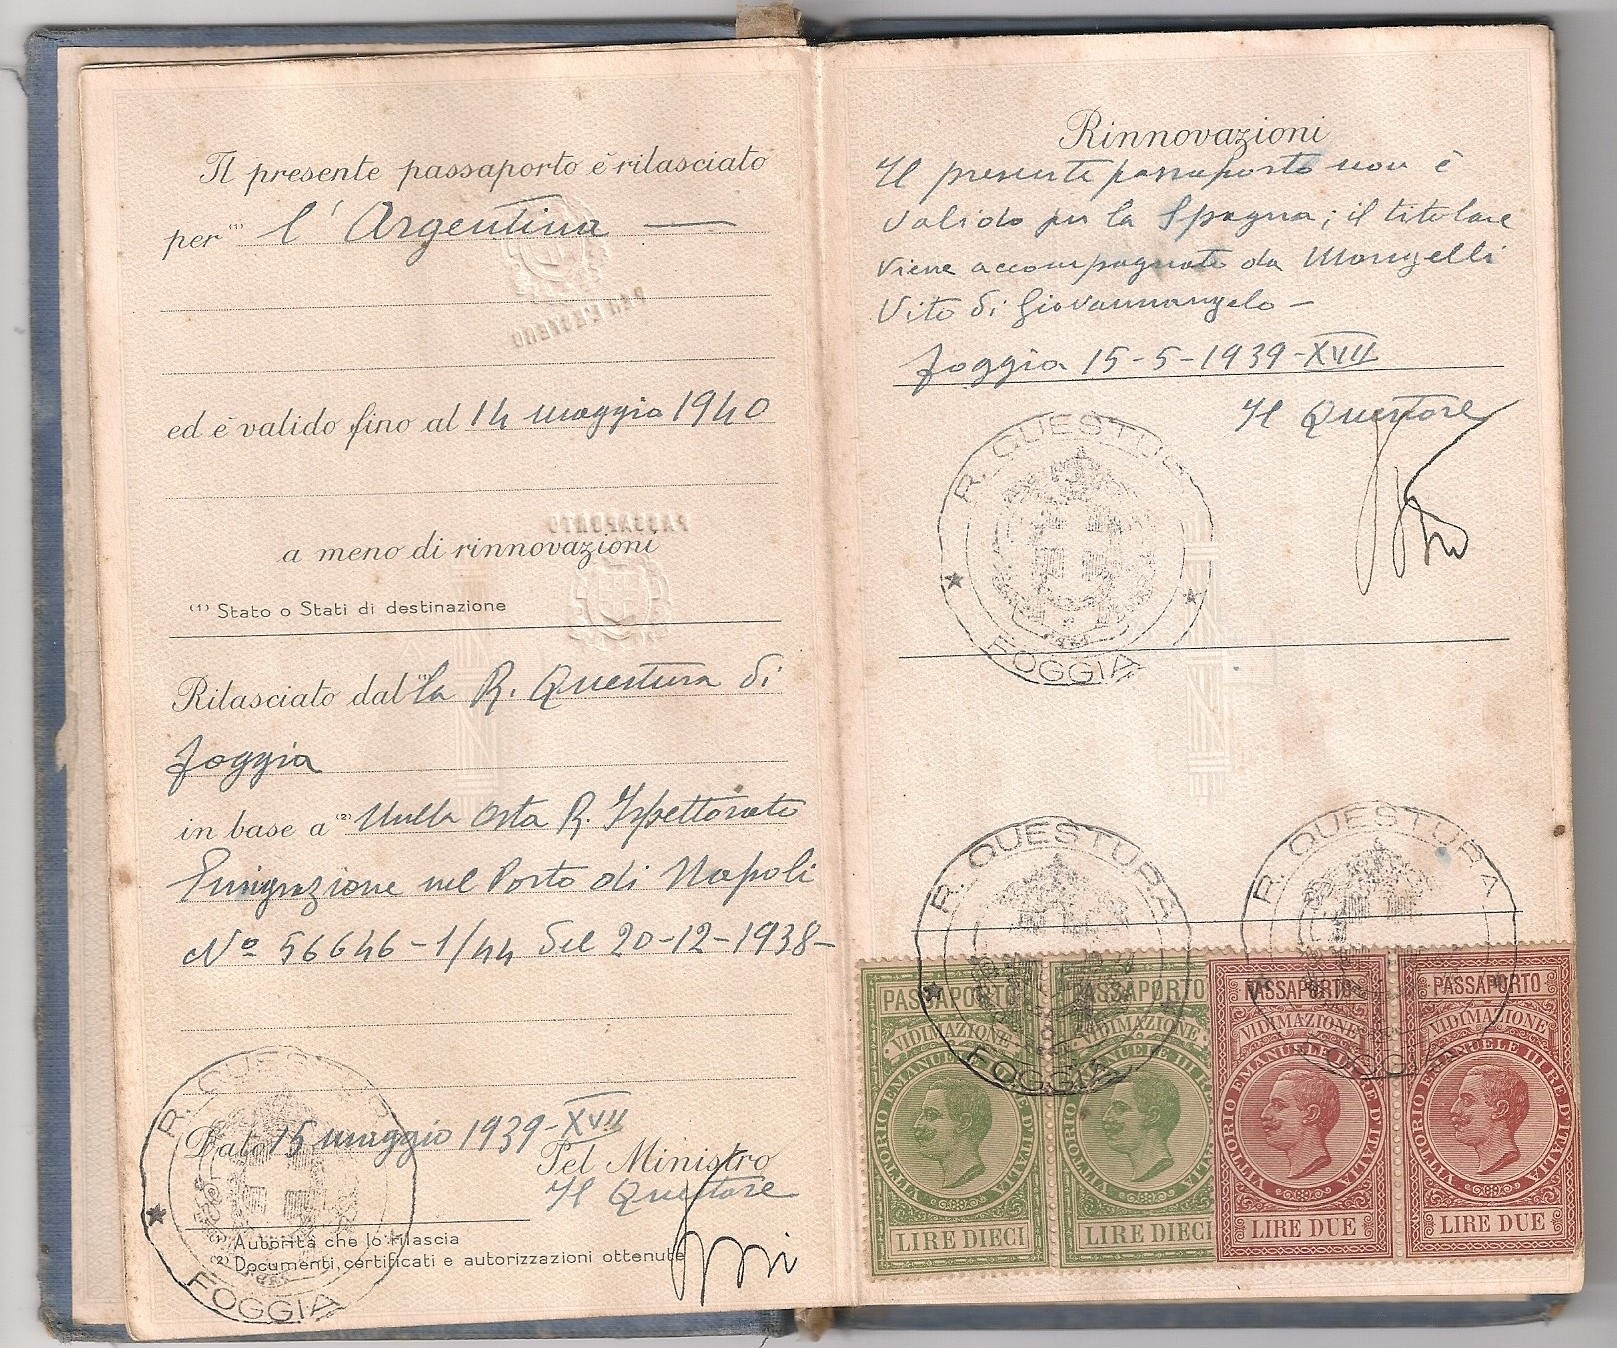 Il presente passaporto è rilasciato
per (1) l'Argentina —
PASSAPORTO
PER L'ESTERO
ed è valido fino al 14 maggio 1940
PASSAPORTO
a meno di rinnovazioni
(1) Stato o Stati di destinazione
Rilasciato dal (1) la R. Questura di
Foggia
in base a (2) Nulla Osta R. Ispettorato
Emigrazione nel Porto di Napoli
Nº 56646-1/44 del 20-12-1938-
Dato 15 maggio 1939-XVII
Pel Ministro
Il Questore
(1) Autorità che lo rilascia
(2) Documenti, certificati e autorizzazioni ottenute
R. QUESTURA
FOGGIA
Rinnovazioni
Il presente passaporto non è
valido per la Spagna; il titolare
viene accompagnato da Mongelli
Vito di Giovannangelo -
Foggia 15-5-1939-XVII
Il Questore
R. QUESTURA
FOGGIA
R. QUESTURA
FOGGIA
R. QUESTURA
FOGGIA
PASSAPORTO PASSAPORTO PASSAPORTO PASSAPORTO
VIDIMAZIONE VIDIMAZIONE VIDIMAZIONE VIDIMAZIONE
VITTORIO EMANUELE III RE D'ITALIA VITTORIO EMANUELE III RE D'ITALIA VITTORIO EMANUELE III RE D'ITALIA VITTORIO EMANUELE III RE D'ITALIA
LIRE DIECI LIRE DIECI LIRE DUE LIRE DUE